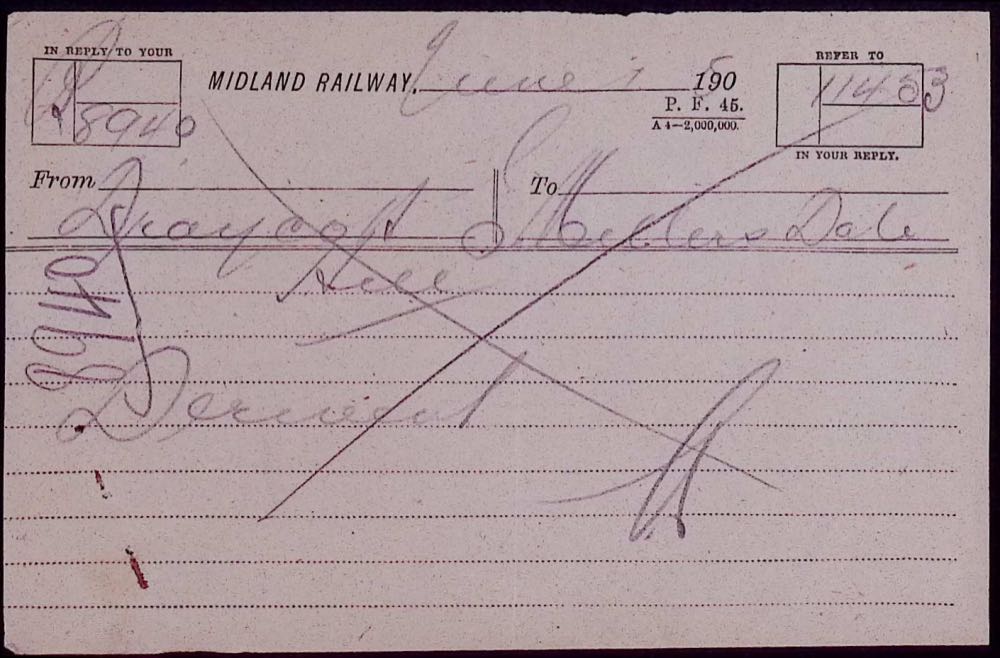 IN REPLY TO YOUR
REFER TO
MIDLAND RAILWAY, June 1 1905
P. F. 45.
A 4—2,000,000.
8940
11453
IN YOUR REPLY.
From
To
Draycott
Millers Dale
8940
Derwent